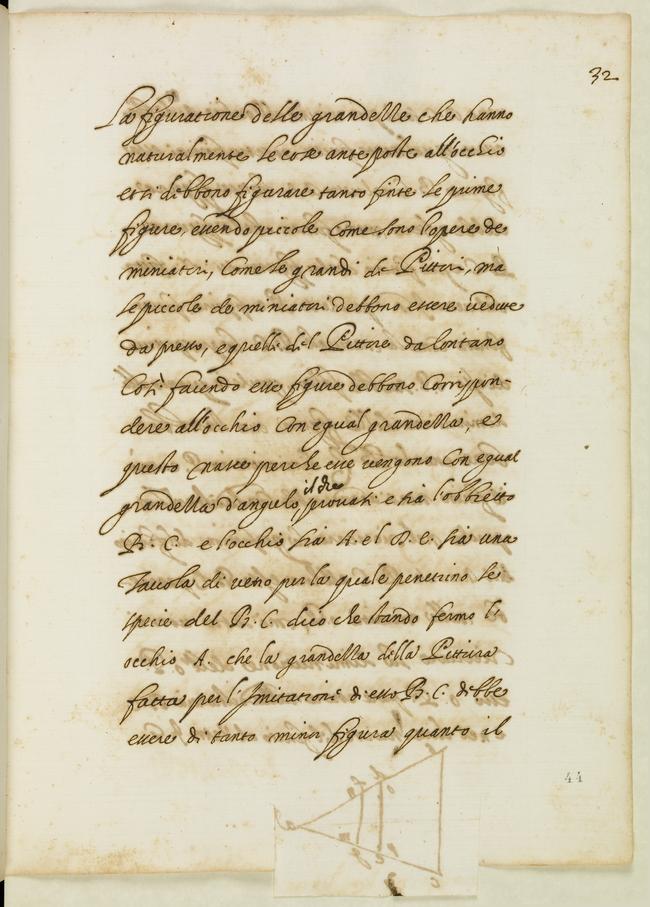 32
La figuratione delle grandezze che hanno
naturalmente le cose anteposte all'occhio
et si debbono figurare tanto finte le prime
figure, essendo piccole come sono l'opere de
miniatori, Come le grandi de Pittori, mà
le piccole de miniatori debbono essere vedute
da presso, e quelle del Pittore da lontano
Così facendo esse figure debbono Corrispon-
dere all'occhio Con egual grandezza, e
questo nasce perche esse vengono Con egual
grandezza d'angulo, il che provasi e sia l'obbietto
B. C. e l'occhio sia A. e l D. E. sia una
Tavola di vetro per la quale penetrino le
specie del B. C. dico che stando fermo l'
occhio A. che la grandezza della Pittura
fatta per l'Imitatione di esso B. C. debbe
essere di tanto minor figura quanto il
44